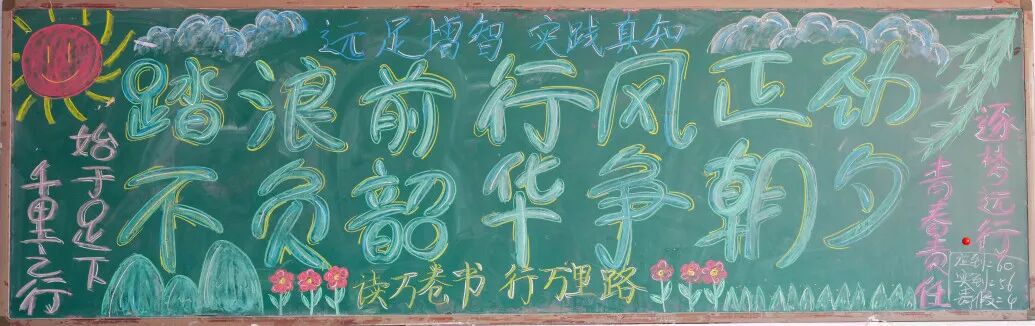 远足增智 实践真知
踏浪前行风正劲
不负韶华争朝夕
千里之行
始于足下
读万卷书 行万里路
逐梦远行
青春有任
应到:60
实到:56
请假:4